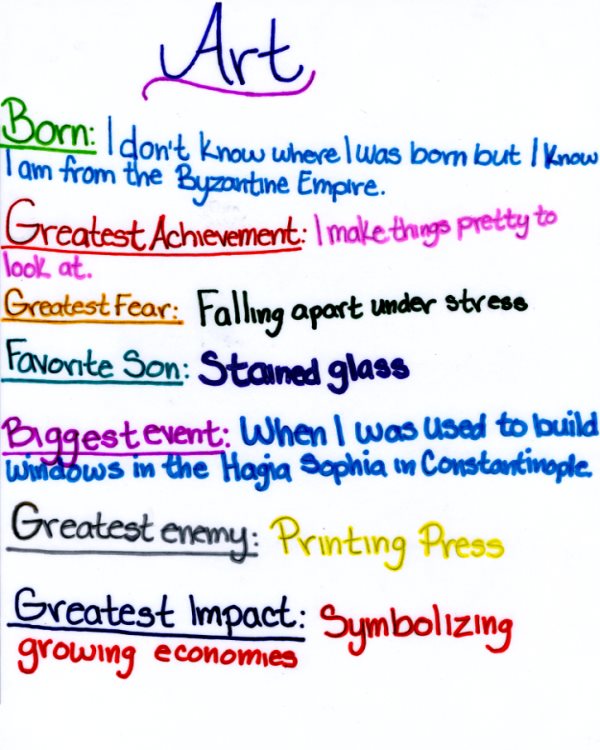 Art
Born: I don't know where I was born but I know
I am from the Byzantine Empire.
Greatest Achievement: I make things pretty to
look at.
Greatest Fear: Falling apart under stress
Favorite Son: Stained glass
Biggest event: When I was used to build
windows in the Hagia Sophia in Constantinople
Greatest enemy: Printing Press
Greatest Impact: Symbolizing
growing economies